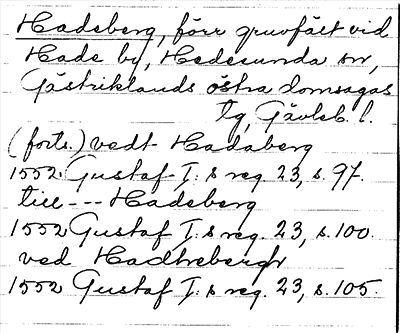 Hadeberg, förr gruvfält vid
Hade by, Hedesunda sn,
Gästriklands östra domsagas
tg, Gävleb. l.
(forts.) vedt Hadaberg
1552 Gustaf I:s reg. 23, s. 97.
till --- Hadeberg
1552 Gustaf I:s reg. 23, s. 100.
ved Hadhebergh
1552 Gustaf I:s reg. 23, s. 105.